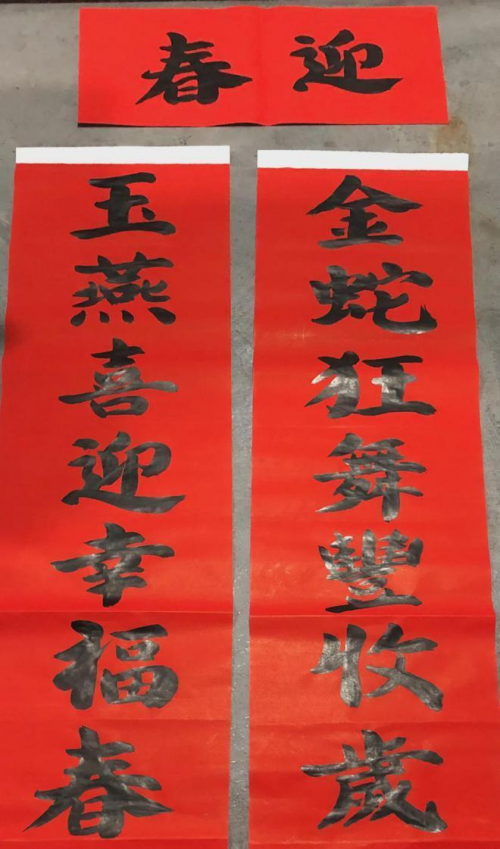 迎春
金蛇狂舞豐收歲
玉燕喜迎幸福春